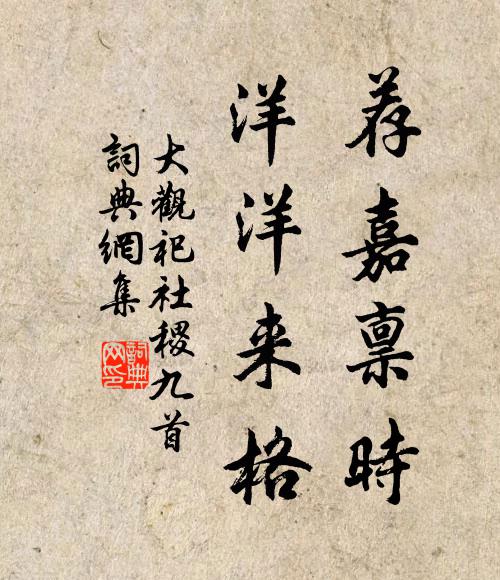 荐嘉禀時
洋洋来格
大觀祀社稷九首
詞典網集
詞典网印